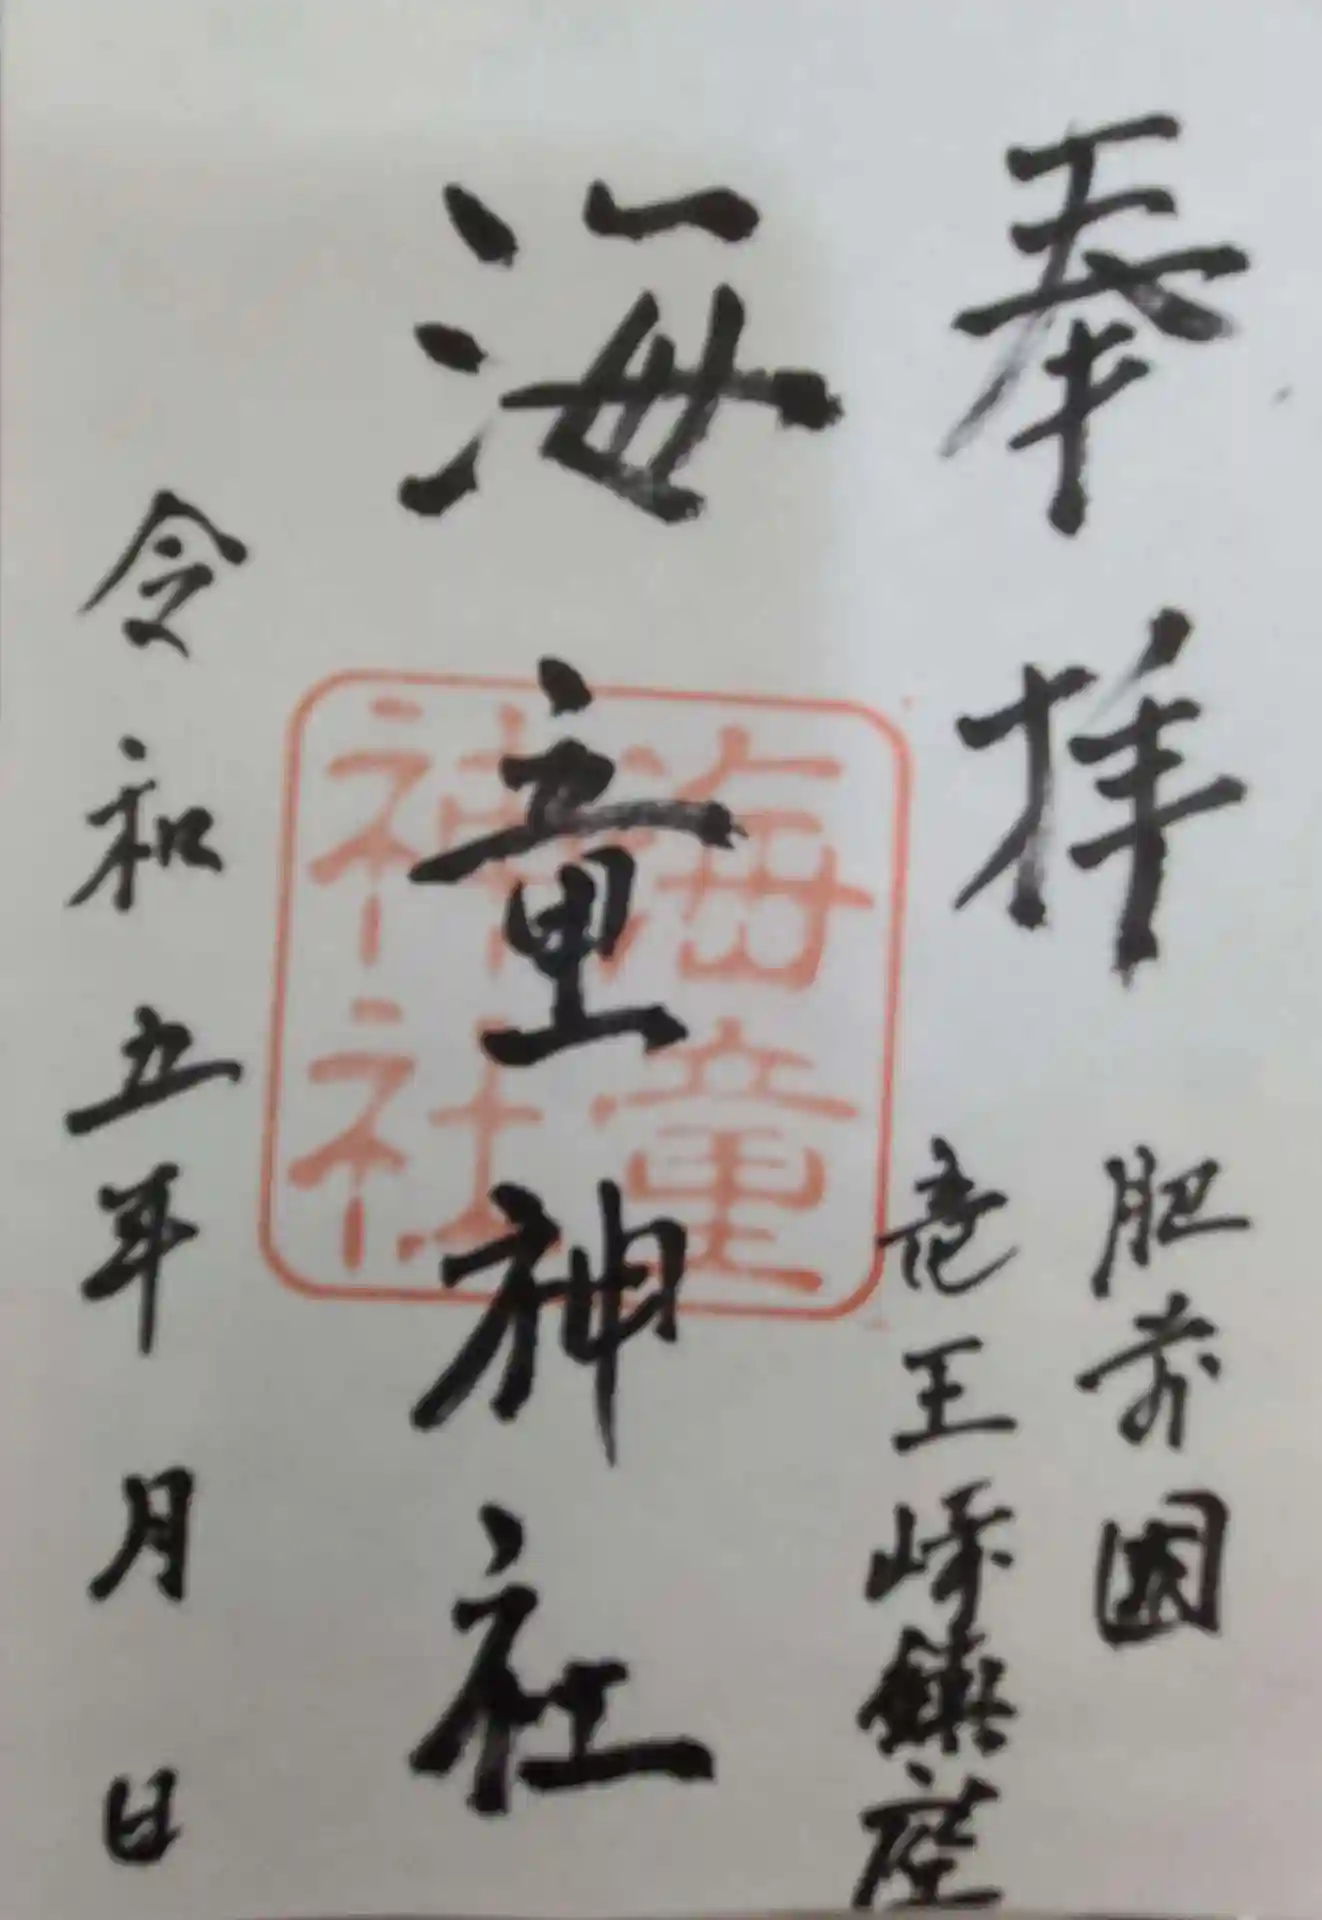 奉拝
肥前国
竜王崎鎮座
海童神社
海童
神社
令和五年月日